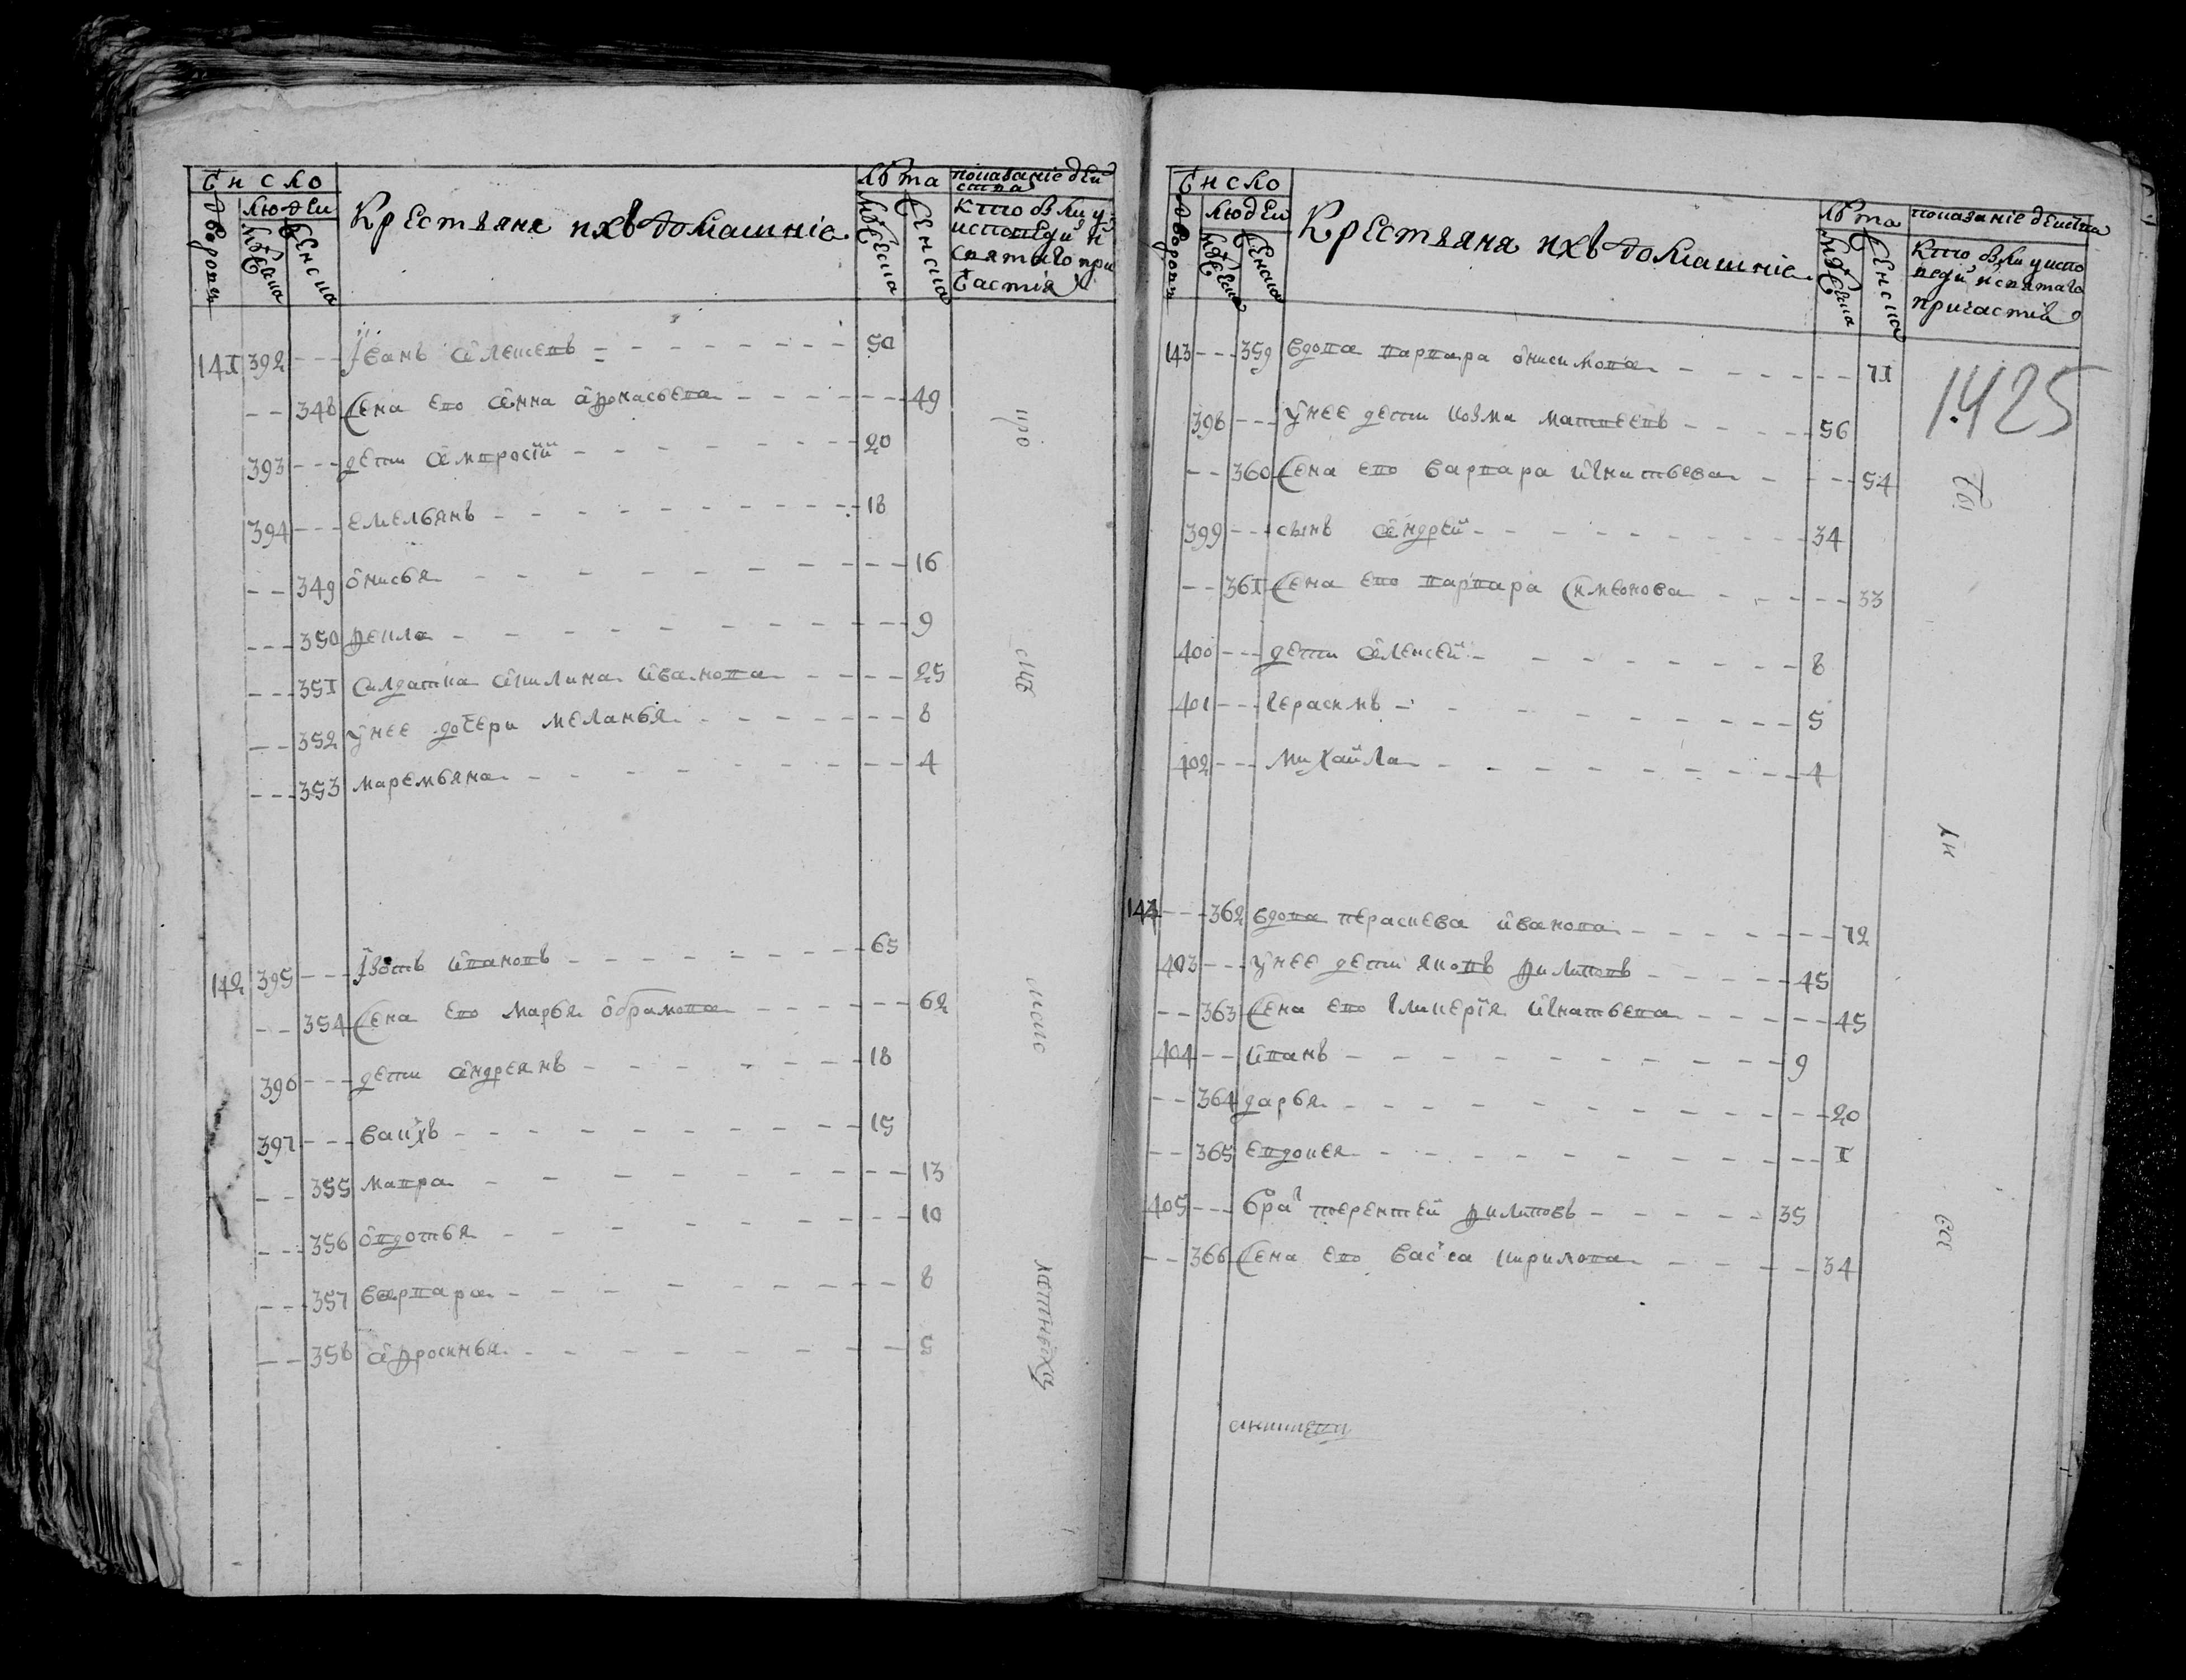 Число
Дворовъ
людей
мужеска
женска
Крестьяне ихъ домашніе
лѣта
мужеска
женска
показаніе дей
ства
кто был у
исповеди и
святаго при
частія
141 392 Іванъ Алексеевъ 50
348 жена ево Анна Афонасьева 49
393 дети Амвросій 20
394 емельянъ 18
349 Онисья 16
350 фекла 9
351 Салдатка Акилина Ивановa 25
352 у нее дочери меланья 8
353 маремьяна 4
142 395 Ізотъ Ивановъ 65
354 жена ево марья Обрамова 62
396 дети Андреянъ 18
397 вакхъ 15
355 мавра 13
356 Овдотья 10
357 варвара 8
358 Афросинья 5
Число
Дворовъ
людей
мужеска
женска
Крестьяне ихъ домашніе
лѣта
мужеска
женска
показаніе действа
кто был у испо
веди и святаго
причастія
1425
143 359 вдова варвара Онисимова 71
398 у нее дети козма матвеевъ 56
360 жена ево варвара Игнатьева 54
399 сынъ Андрей 34
361 жена ево варвара Симеонова 33
400 дети Алексей 8
401 герасимъ 5
402 михайла 4
144 362 вдова пераскева Иванова 72
403 у нее дети яковъ филиповъ 45
363 жена ево гликерія Игнатьева 45
404 Иванъ 9
364 дарья 20
365 евдокея 1
405 брат терентей филиповъ 35
366 жена ево васса кирилова 34